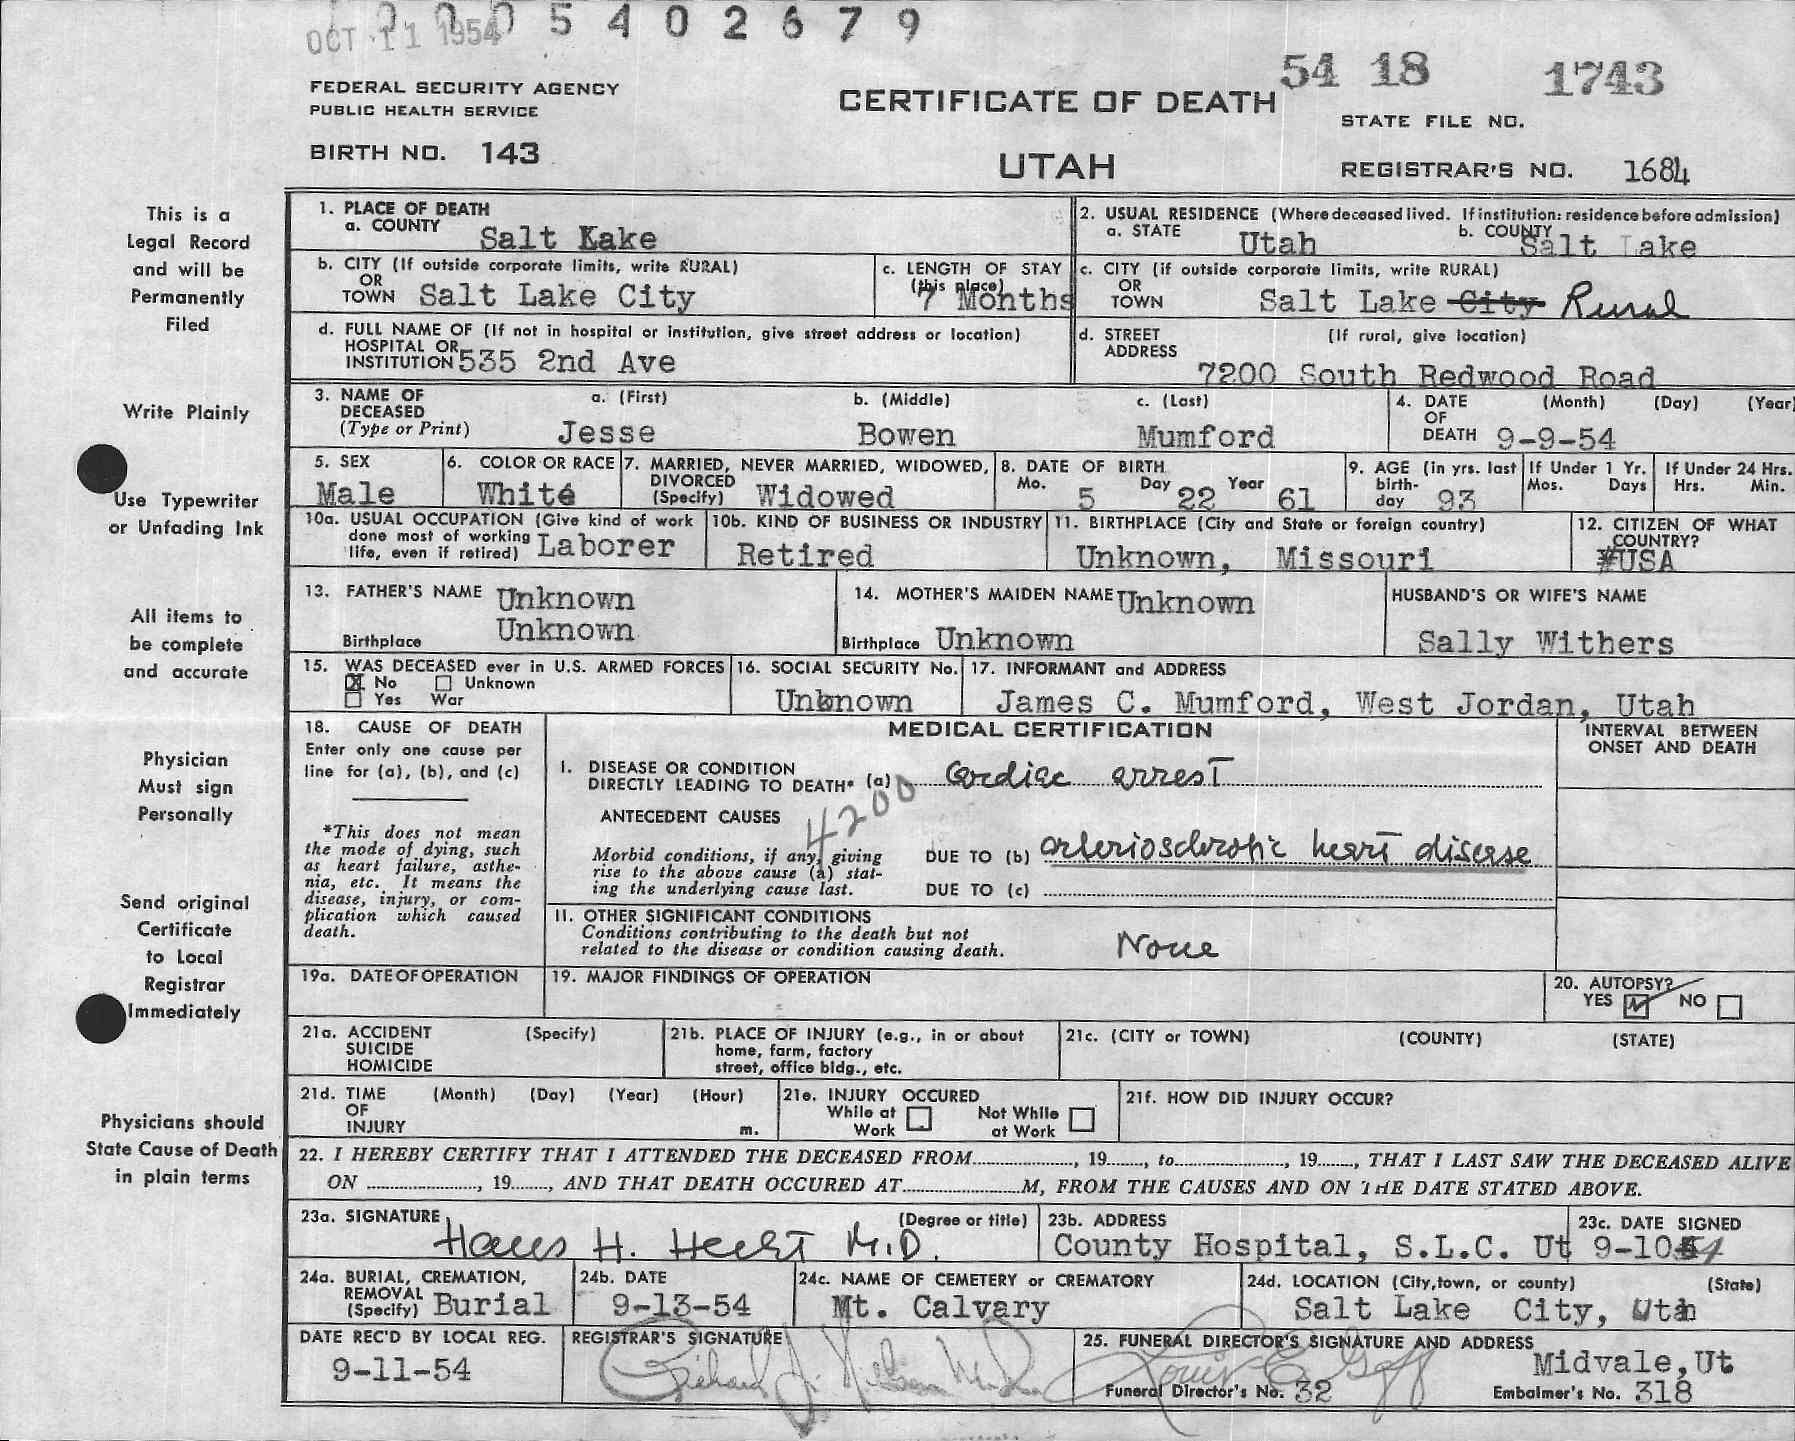 OCT 11 1954 5 4 0 2 6 7 9
54 18 1743
FEDERAL SECURITY AGENCY
PUBLIC HEALTH SERVICE
CERTIFICATE OF DEATH
STATE FILE NO.
BIRTH NO. 143
UTAH
REGISTRAR'S NO. 1684
This is a
Legal Record
and will be
Permanently
Filed
Write Plainly
Use Typewriter
or Unfading Ink
All items to
be complete
and accurate
Physician
Must sign
Personally
Send original
Certificate
to Local
Registrar
Immediately
Physicians should
State Cause of Death
in plain terms
1. PLACE OF DEATH
a. COUNTY Salt Kake
2. USUAL RESIDENCE (Where deceased lived. If institution: residence before admission)
a. STATE Utah b. COUNTY Salt Lake
b. CITY (If outside corporate limits, write RURAL)
OR
TOWN Salt Lake City
c. LENGTH OF STAY
(this place)
7 Months
c. CITY (if outside corporate limits, write RURAL)
OR
TOWN Salt Lake City Rural
d. FULL NAME OF (If not in hospital or institution, give street address or location)
HOSPITAL OR
INSTITUTION 535 2nd Ave
d. STREET (If rural, give location)
ADDRESS
7200 South Redwood Road
3. NAME OF a. (First) b. (Middle) c. (Last)
DECEASED
(Type or Print) Jesse Bowen Mumford
4. DATE (Month) (Day) (Year)
OF
DEATH 9-9-54
5. SEX
Male
6. COLOR OR RACE
White
7. MARRIED, NEVER MARRIED, WIDOWED,
DIVORCED
(Specify) Widowed
8. DATE OF BIRTH
Mo. 5 Day 22 Year 61
9. AGE (in yrs. last
birth-
day 93
If Under 1 Yr.
Mos. Days
If Under 24 Hrs.
Hrs. Min.
10a. USUAL OCCUPATION (Give kind of work
done most of working
life, even if retired) Laborer
10b. KIND OF BUSINESS OR INDUSTRY
Retired
11. BIRTHPLACE (City and State or foreign country)
Unknown, Missouri
12. CITIZEN OF WHAT
COUNTRY?
USA
13. FATHER'S NAME Unknown
Birthplace Unknown
14. MOTHER'S MAIDEN NAME Unknown
Birthplace Unknown
HUSBAND'S OR WIFE'S NAME
Sally Withers
15. WAS DECEASED ever in U.S. ARMED FORCES
X No Unknown
Yes War
16. SOCIAL SECURITY No.
Unknown
17. INFORMANT and ADDRESS
James C. Mumford, West Jordan, Utah
18. CAUSE OF DEATH
Enter only one cause per
line for (a), (b), and (c)
*This does not mean
the mode of dying, such
as heart failure, asthe-
nia, etc. It means the
disease, injury, or com-
plication which caused
death.
MEDICAL CERTIFICATION
INTERVAL BETWEEN
ONSET AND DEATH
I. DISEASE OR CONDITION
DIRECTLY LEADING TO DEATH* (a) Cardiac arrest
ANTECEDENT CAUSES
4200
Morbid conditions, if any, giving
rise to the above cause (a) stat-
ing the underlying cause last.
DUE TO (b) arteriosclrotic heart disease
DUE TO (c)
II. OTHER SIGNIFICANT CONDITIONS
Conditions contributing to the death but not
related to the disease or condition causing death.
None
19a. DATE OF OPERATION
19. MAJOR FINDINGS OF OPERATION
20. AUTOPSY?
YES NO
21a. ACCIDENT (Specify)
SUICIDE
HOMICIDE
21b. PLACE OF INJURY (e.g., in or about
home, farm, factory
street, office bldg., etc.
21c. (CITY or TOWN) (COUNTY) (STATE)
21d. TIME (Month) (Day) (Year) (Hour)
OF
INJURY m.
21e. INJURY OCCURED
While at Work Not While at Work
21f. HOW DID INJURY OCCUR?
22. I HEREBY CERTIFY THAT I ATTENDED THE DECEASED FROM , 19 , to , 19 , THAT I LAST SAW THE DECEASED ALIVE
ON , 19 , AND THAT DEATH OCCURED AT M, FROM THE CAUSES AND ON THE DATE STATED ABOVE.
23a. SIGNATURE (Degree or title)
Hans H. Hecht M.D.
23b. ADDRESS
County Hospital, S.L.C. Ut
23c. DATE SIGNED
9-10-54
24a. BURIAL, CREMATION,
REMOVAL
(Specify) Burial
24b. DATE
9-13-54
24c. NAME OF CEMETERY or CREMATORY
Mt. Calvary
24d. LOCATION (City, town, or county) (State)
Salt Lake City, Utah
DATE REC'D BY LOCAL REG.
9-11-54
REGISTRAR'S SIGNATURE
Richard J.
25. FUNERAL DIRECTOR'S SIGNATURE AND ADDRESS
Louis E. Goff
Midvale, Ut
Funeral Director's No. 32 Embalmer's No. 318